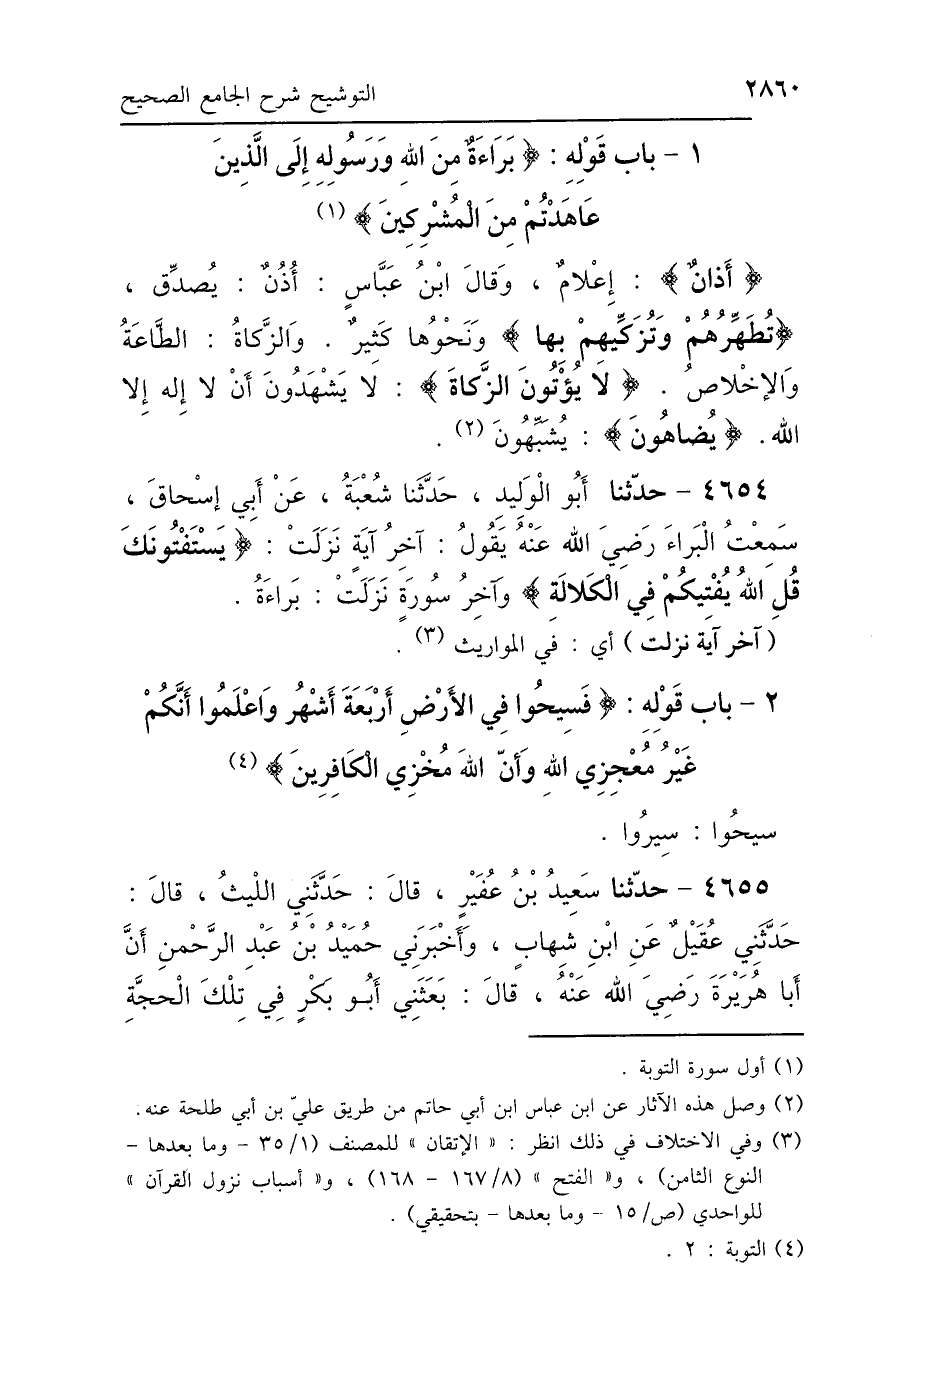 ٢٨٦٠ التوشيح شرح الجامع الصحيح
١ - باب قَوْلِهِ : ﴿ بَرَاءَةٌ مِنَ اللهِ وَرَسُولِهِ إِلَى الَّذِينَ
عَاهَدْتُمْ مِنَ الْمُشْرِكِينَ ﴾ (١)
﴿ أَذانٌ ﴾ : إِعْلامٌ ، وَقالَ ابْنُ عَبَّاسٍ : أُذُنٌ : يُصدِّق ،
﴿تُطَهِّرُهُمْ وَتُزَكِّيهِمْ بِها ﴾ وَنَحْوُها كَثِيرٌ . وَالزَّكاةُ : الطَّاعَةُ
وَالإخْلاصُ . ﴿ لا يُؤْتُونَ الزَّكاةَ ﴾ : لا يَشْهَدُونَ أَنْ لا إِله إِلا
الله. ﴿ يُضاهُونَ ﴾ : يُشَبِّهُونَ (٢) .
٤٦٥٤ - حدّثنا أَبُو الْوَلِيدِ ، حَدَّثَنا شُعْبَةُ ، عَنْ أَبِي إِسْحاقَ ،
سَمِعْتُ الْبَراءَ رَضِيَ الله عَنْهُ يَقُولُ : آخِرُ آيَةٍ نَزَلَتْ : ﴿ يَسْتَفْتُونَكَ
قُلِ اللهُ يُفْتِيكُمْ فِي الْكَلالَةِ ﴾ وَآخِرُ سُورَةٍ نَزَلَتْ : بَراءَةُ .
( آخر آية نزلت ) أي : في المواريث (٣) .
٢ - باب قَوْلِهِ : ﴿ فَسِيحُوا فِي الأَرْضِ أَرْبَعَةَ أَشْهُرٍ وَاعْلَمُوا أَنَّكُمْ
غَيْرُ مُعْجِزِي اللهِ وَأَنّ اللهَ مُخْزِي الْكَافِرِينَ ﴾ (٤)
سيحُوا : سِيرُوا .
٤٦٥٥ - حدّثنا سَعِيدُ بْنُ عُفَيْرٍ ، قالَ : حَدَّثَنِي الليْثُ ، قالَ :
حَدَّثَنِي عُقَيْلٌ عَنِ ابْنِ شِهابٍ ، وَأَخْبَرَنِي حُمَيْدُ بْنُ عَبْدِ الرَّحْمنِ أَنَّ
أَبا هُرَيْرَةَ رَضِيَ الله عَنْهُ ، قالَ : بَعَثَنِي أَبُو بَكْرٍ فِي تِلْكَ الْحجَّةِ
(١) أول سورة التوبة .
(٢) وصل هذه الآثار عن ابن عباس ابن أبي حاتم من طريق عليّ بن أبي طلحة عنه.
(٣) وفي الاختلاف في ذلك انظر : « الإتقان » للمصنف (٣٥/١ - وما بعدها -
النوع الثامن) ، و« الفتح » (١٦٧/٨ - ١٦٨) ، و« أسباب نزول القرآن »
للواحدي (ص/١٥ - وما بعدها - بتحقيقي) .
(٤) التوبة : ٢ .